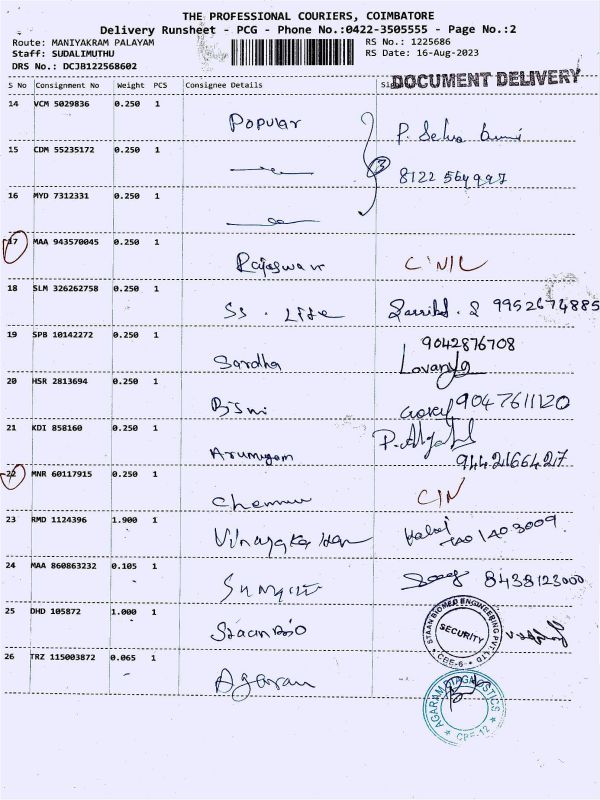 THE PROFESSIONAL COURIERS, COIMBATORE
Delivery Runsheet - PCG - Phone No.:0422-3505555 - Page No.:2
Route: MANIYAKRAM PALAYAM
RS No.: 1225686
Staff: SUDALIMUTHU
RS Date: 16-Aug-2023
DRS No.: DCJB122568602
DOCUMENT DELIVERY
S No Consignment No Weight PCS Consignee Details
14 VCM 5029836 0.250 1 Popular
15 CDM 55235172 0.250 1
3
8122 564997
16 MYD 7312331 0.250 1
17 MAA 943570045 0.250 1 Rajeswari
18 SLM 326262758 0.250 1 SS. Life 9952674885
19 SPB 10142272 0.250 1 Sardha 9042876708
Lovanya
20 HSR 2813694 0.250 1 Bismi 9047611120
21 KDI 858160 0.250 1 Arumugam
9442166427
22 MNR 60117915 0.250 1
23 RMD 1124396 1.900 1
24 MAA 860863232 0.105 1 8438123000
25 DHD 105872 1.000 1 Staan Bio
STAAN BIOMED ENGINEERING PVT LTD
SECURITY
CBE-6
26 TRZ 115003872 0.065 1 Agaram
AGARAM DIAGNOSTICS
CBE-12